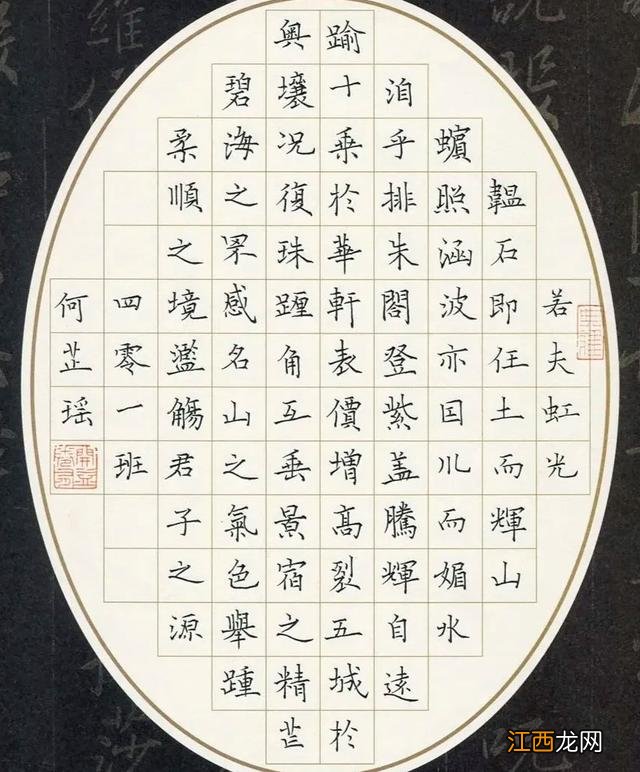 若夫虹光
韞石即任土而輝山
蠙照涵波亦因川而媚水
洎乎排朱閣登紫盖騰輝自遠
踰十乘於華軒表價增高裂五城於
奥壤况復珠躔角互垂景宿之精芒
碧海之罘感名山之氣色舉踵
柔順之境濫觴君子之源
四零一班
何芷瑶
江西龙网